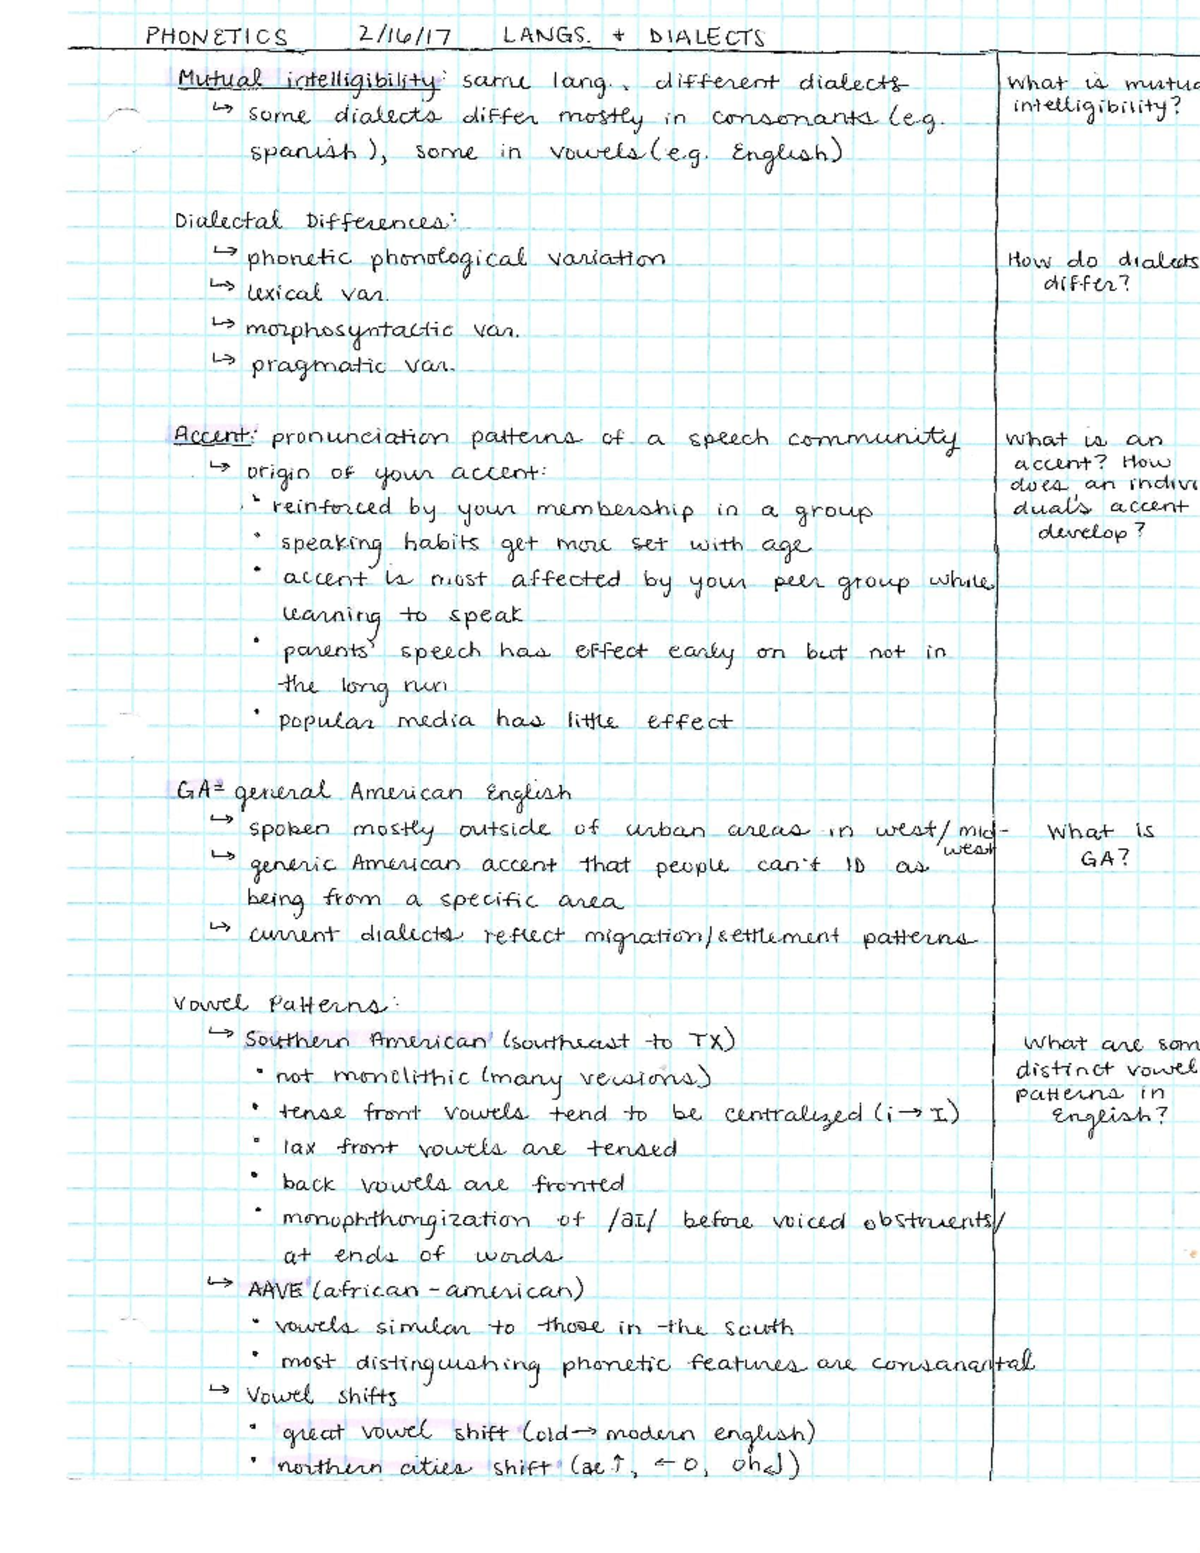 PHONETICS 2/16/17 LANGS. + DIALECTS
Mutual intelligibility: same lang., different dialects
↳ some dialects differ mostly in consonants (e.g.
spanish), some in vowels (e.g. English)
What is mutua
intelligibility?
Dialectal Differences:
↳ phonetic phonological variation
↳ lexical var.
↳ morphosyntactic var.
↳ pragmatic var.
How do dialects
differ?
Accent: pronunciation patterns of a speech community
↳ origin of your accent:
• reinforced by your membership in a group
• speaking habits get more set with age
• accent is most affected by your peer group while
learning to speak
• parents' speech has effect early on but not in
the long run
• popular media has little effect
What is an
accent? How
does an indivi
dual's accent
develop?
GA = general American English
↳ spoken mostly outside of urban areas in west/mid-
west
↳ generic American accent that people can't ID as
being from a specific area
↳ current dialects reflect migration/settlement patterns
What is
GA?
Vowel Patterns:
↳ Southern American (southeast to TX)
• not monolithic (many versions)
• tense front vowels tend to be centralized (i→I)
• lax front vowels are tensed
• back vowels are fronted
• monophthongization of /aI/ before voiced obstruents/
at ends of words
↳ AAVE (african-american)
• vowels similar to those in the south
• most distinguishing phonetic features are consanantal
↳ Vowel shifts
• great vowel shift (old→modern english)
• northern cities shift (ae↑, ←o,
What are som
distinct vowel
patterns in
English?